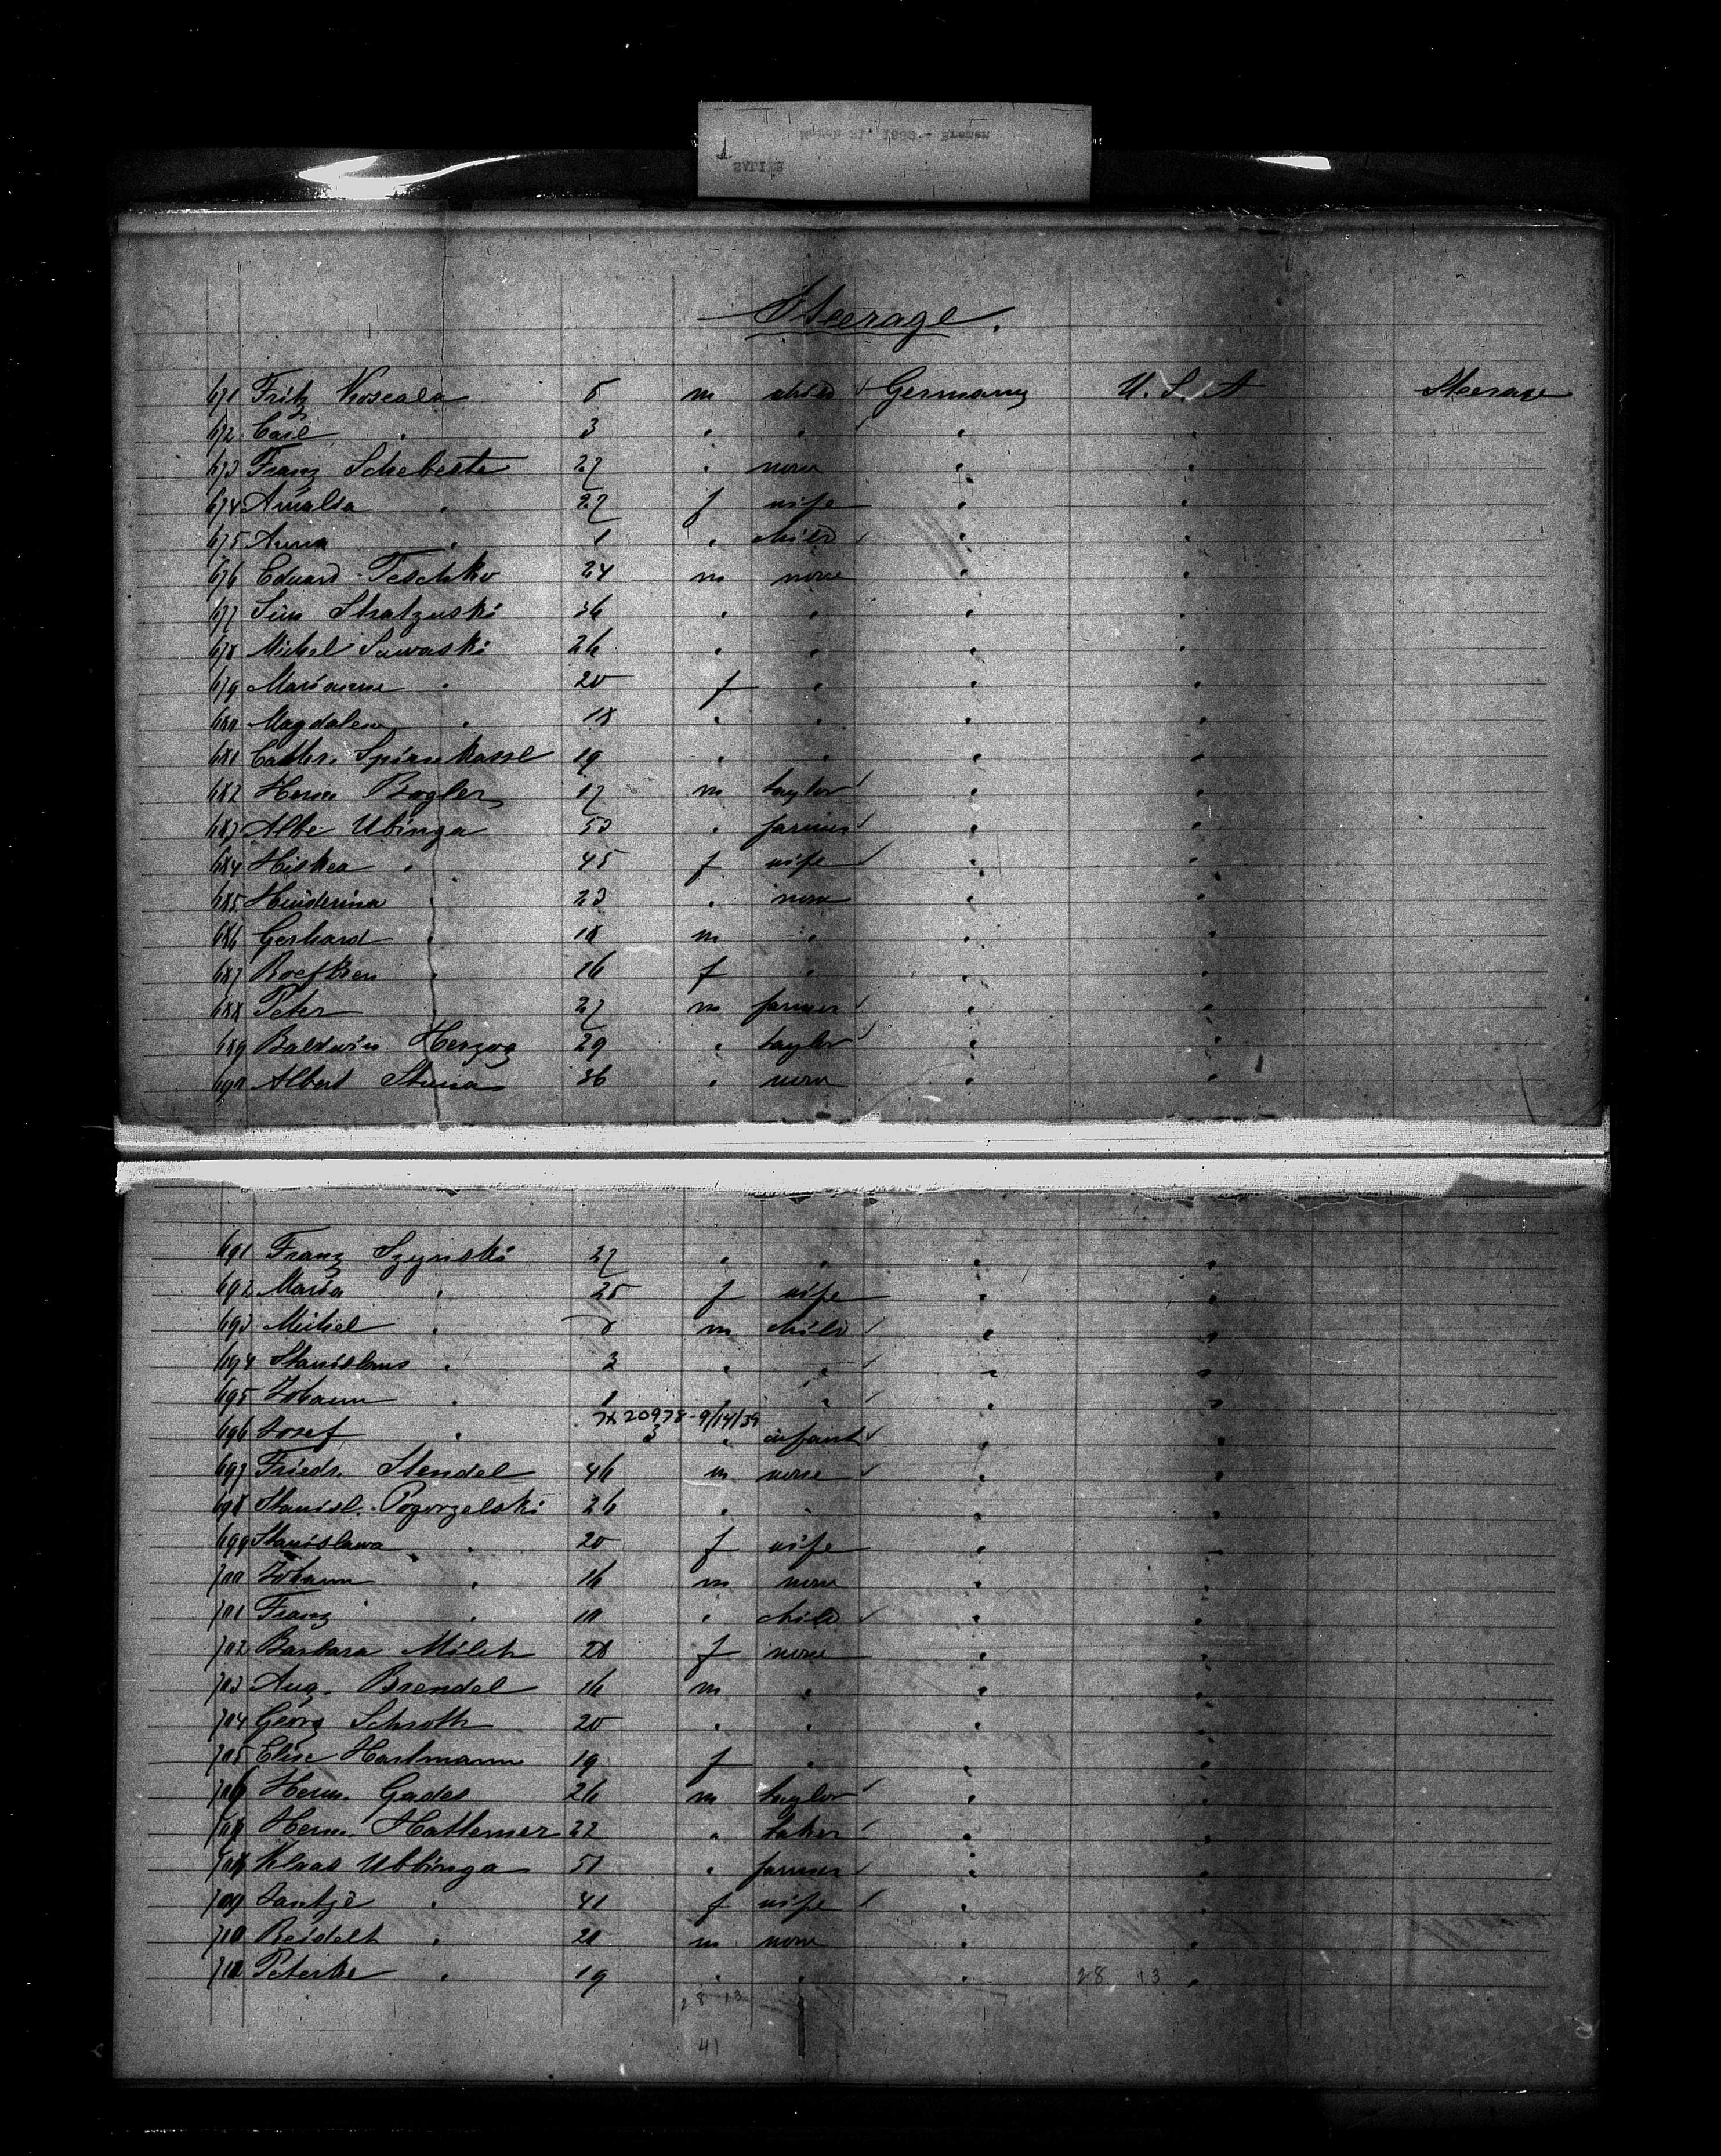 March 21, 1892 - Bremen
SALIER
Steerage.
671 Fritz Koseala 5 m child ✓ Germany U. S. A Steerage
672 Carl " 3 " " ✓ " "
673 Franz Schebesta 27 " none " "
674 Amalia " 27 f wife " "
675 Anna " 1 " child ✓ " "
676 Eduard Teschko 24 m none " "
677 Sim Shatzuski 36 " " " "
678 Michel Suwaski 26 " " " "
679 Marianne " 20 f " " "
680 Magdalena " 18 " " " "
681 Cathr. 19 " " " "
682 Herm. Bogler 17 m taylor ✓ " "
683 Albe Ubinga 53 " farmer ✓ " "
684 Hiskea " 45 f wife ✓ " "
685 Hinderina " 23 " none " "
686 Gerhard " 18 m " " "
687 Roefken " 16 f " " "
688 Peter " 27 m farmer ✓ " "
689 Baldwin Herzog 29 " taylor ✓ " "
690 Albert 36 " none " "
691 Franz Szynski 27 " " " "
692 Maria " 25 f wife " "
693 Michel " m child ✓ " "
694 Stanislaus " 3 " " ✓ " "
695 Johann " 1 " " ✓ " "
7x 20978-9/14/39
696 Josef " 3 " infant ✓ " "
697 Friedr. Stendel 46 m none ✓ " "
698 Stanisl. Pogorzelski 26 " " " "
699 Stanislawa " 20 f wife " "
700 Johann " 16 m none " "
701 Franz " 10 " child ✓ " "
702 Barbara Milch 28 f none " "
703 Aug. Brendel 16 m " " "
704 Georg Schroth 20 " " " "
705 Elise Hartmann 19 f " " "
706 Herm. Gades 26 m taylor ✓ " "
707 Herm. Hattemer 22 " baker ✓ " "
708 Klaas Ubbinga 51 " farmer ✓ " "
709 Jantje " 41 f wife ✓ " "
710 Reidelt " 20 m none " "
711 Peterke " 19 " " " 28 13 "
28 13
41